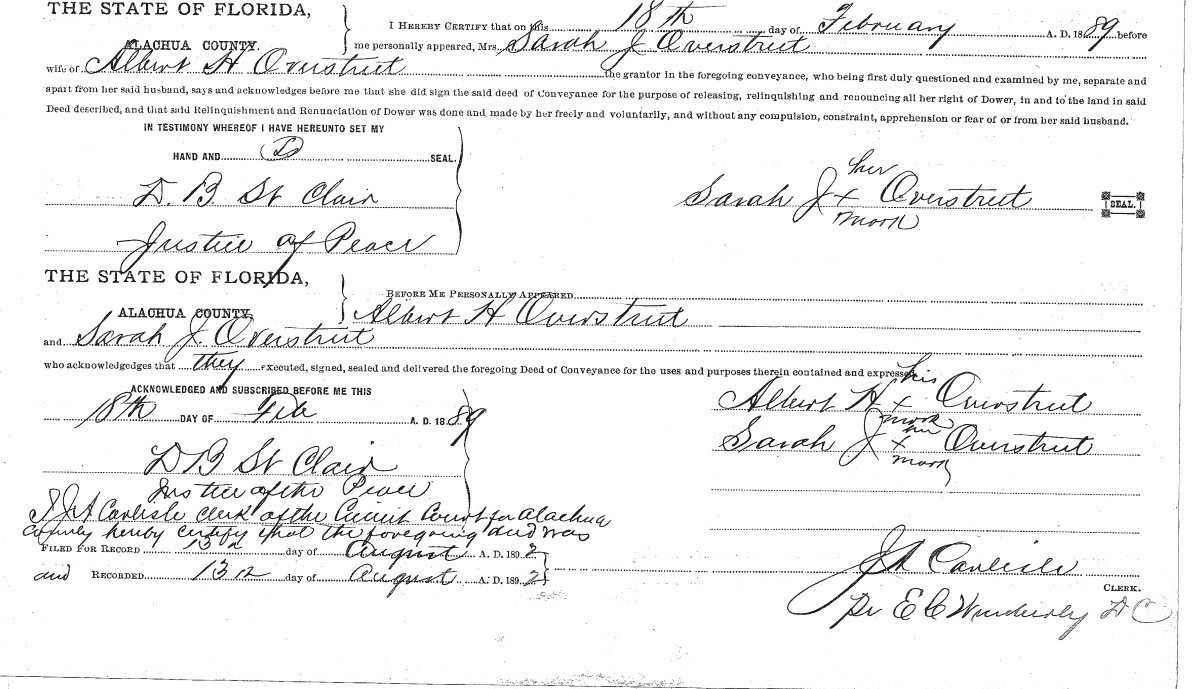 THE STATE OF FLORIDA,
I HEREBY CERTIFY that on this 18th day of February A. D. 1889 before
ALACHUA COUNTY. me personally appeared, Mrs. Sarah J Overstreet
wife of Albert H Overstreet the grantor in the foregoing conveyance, who being first duly questioned and examined by me, separate and
apart from her said husband, says and acknowledges before me that she did sign the said deed of Conveyance for the purpose of releasing, relinquishing and renouncing all her right of Dower, in and to the land in said
Deed described, and that said Relinquishment and Renunciation of Dower was done and made by her freely and voluntarily, and without any compulsion, constraint, apprehension or fear of or from her said husband.
IN TESTIMONY WHEREOF I HAVE HEREUNTO SET MY
HAND AND SEAL.
D. B. St Clair
Justice of Peace
her
Sarah J x Overstreet SEAL.
mark
THE STATE OF FLORIDA,
BEFORE ME PERSONALLY APPEARED
ALACHUA COUNTY, Albert H Overstreet
and Sarah J. Overstreet
who acknowledgedges that they executed, signed, sealed and delivered the foregoing Deed of Conveyance for the uses and purposes therein contained and expressed.
ACKNOWLEDGED AND SUBSCRIBED BEFORE ME THIS
18th DAY OF Feb A. D. 1889
D B St Clair
Justice of the Peace
his
Albert H x Overstreet
mark
her
Sarah J x Overstreet
mark
I J A Carlisle clerk of the Circuit Court for Alachua
County hereby certify that the foregoing deed was
FILED FOR RECORD 13th day of August A. D. 1892
and RECORDED 13th day of August A. D. 1892
J A Carlisle
CLERK.
Pr E C Wimberly D C